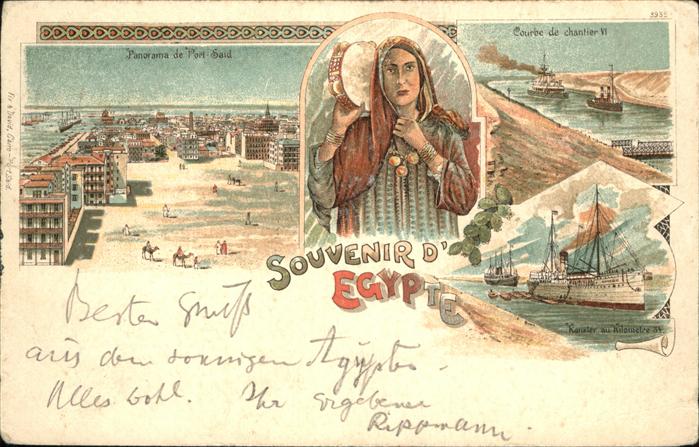 3935
Panorama de Port-Saïd
Courbe de chantier VI
SOUVENIR D'
EGYPTE
au Kilometre 34.
Bester Gruß
aus dem sonnigen Ägypten.
Alles wohl. Ihr ergebener
Rippmann.